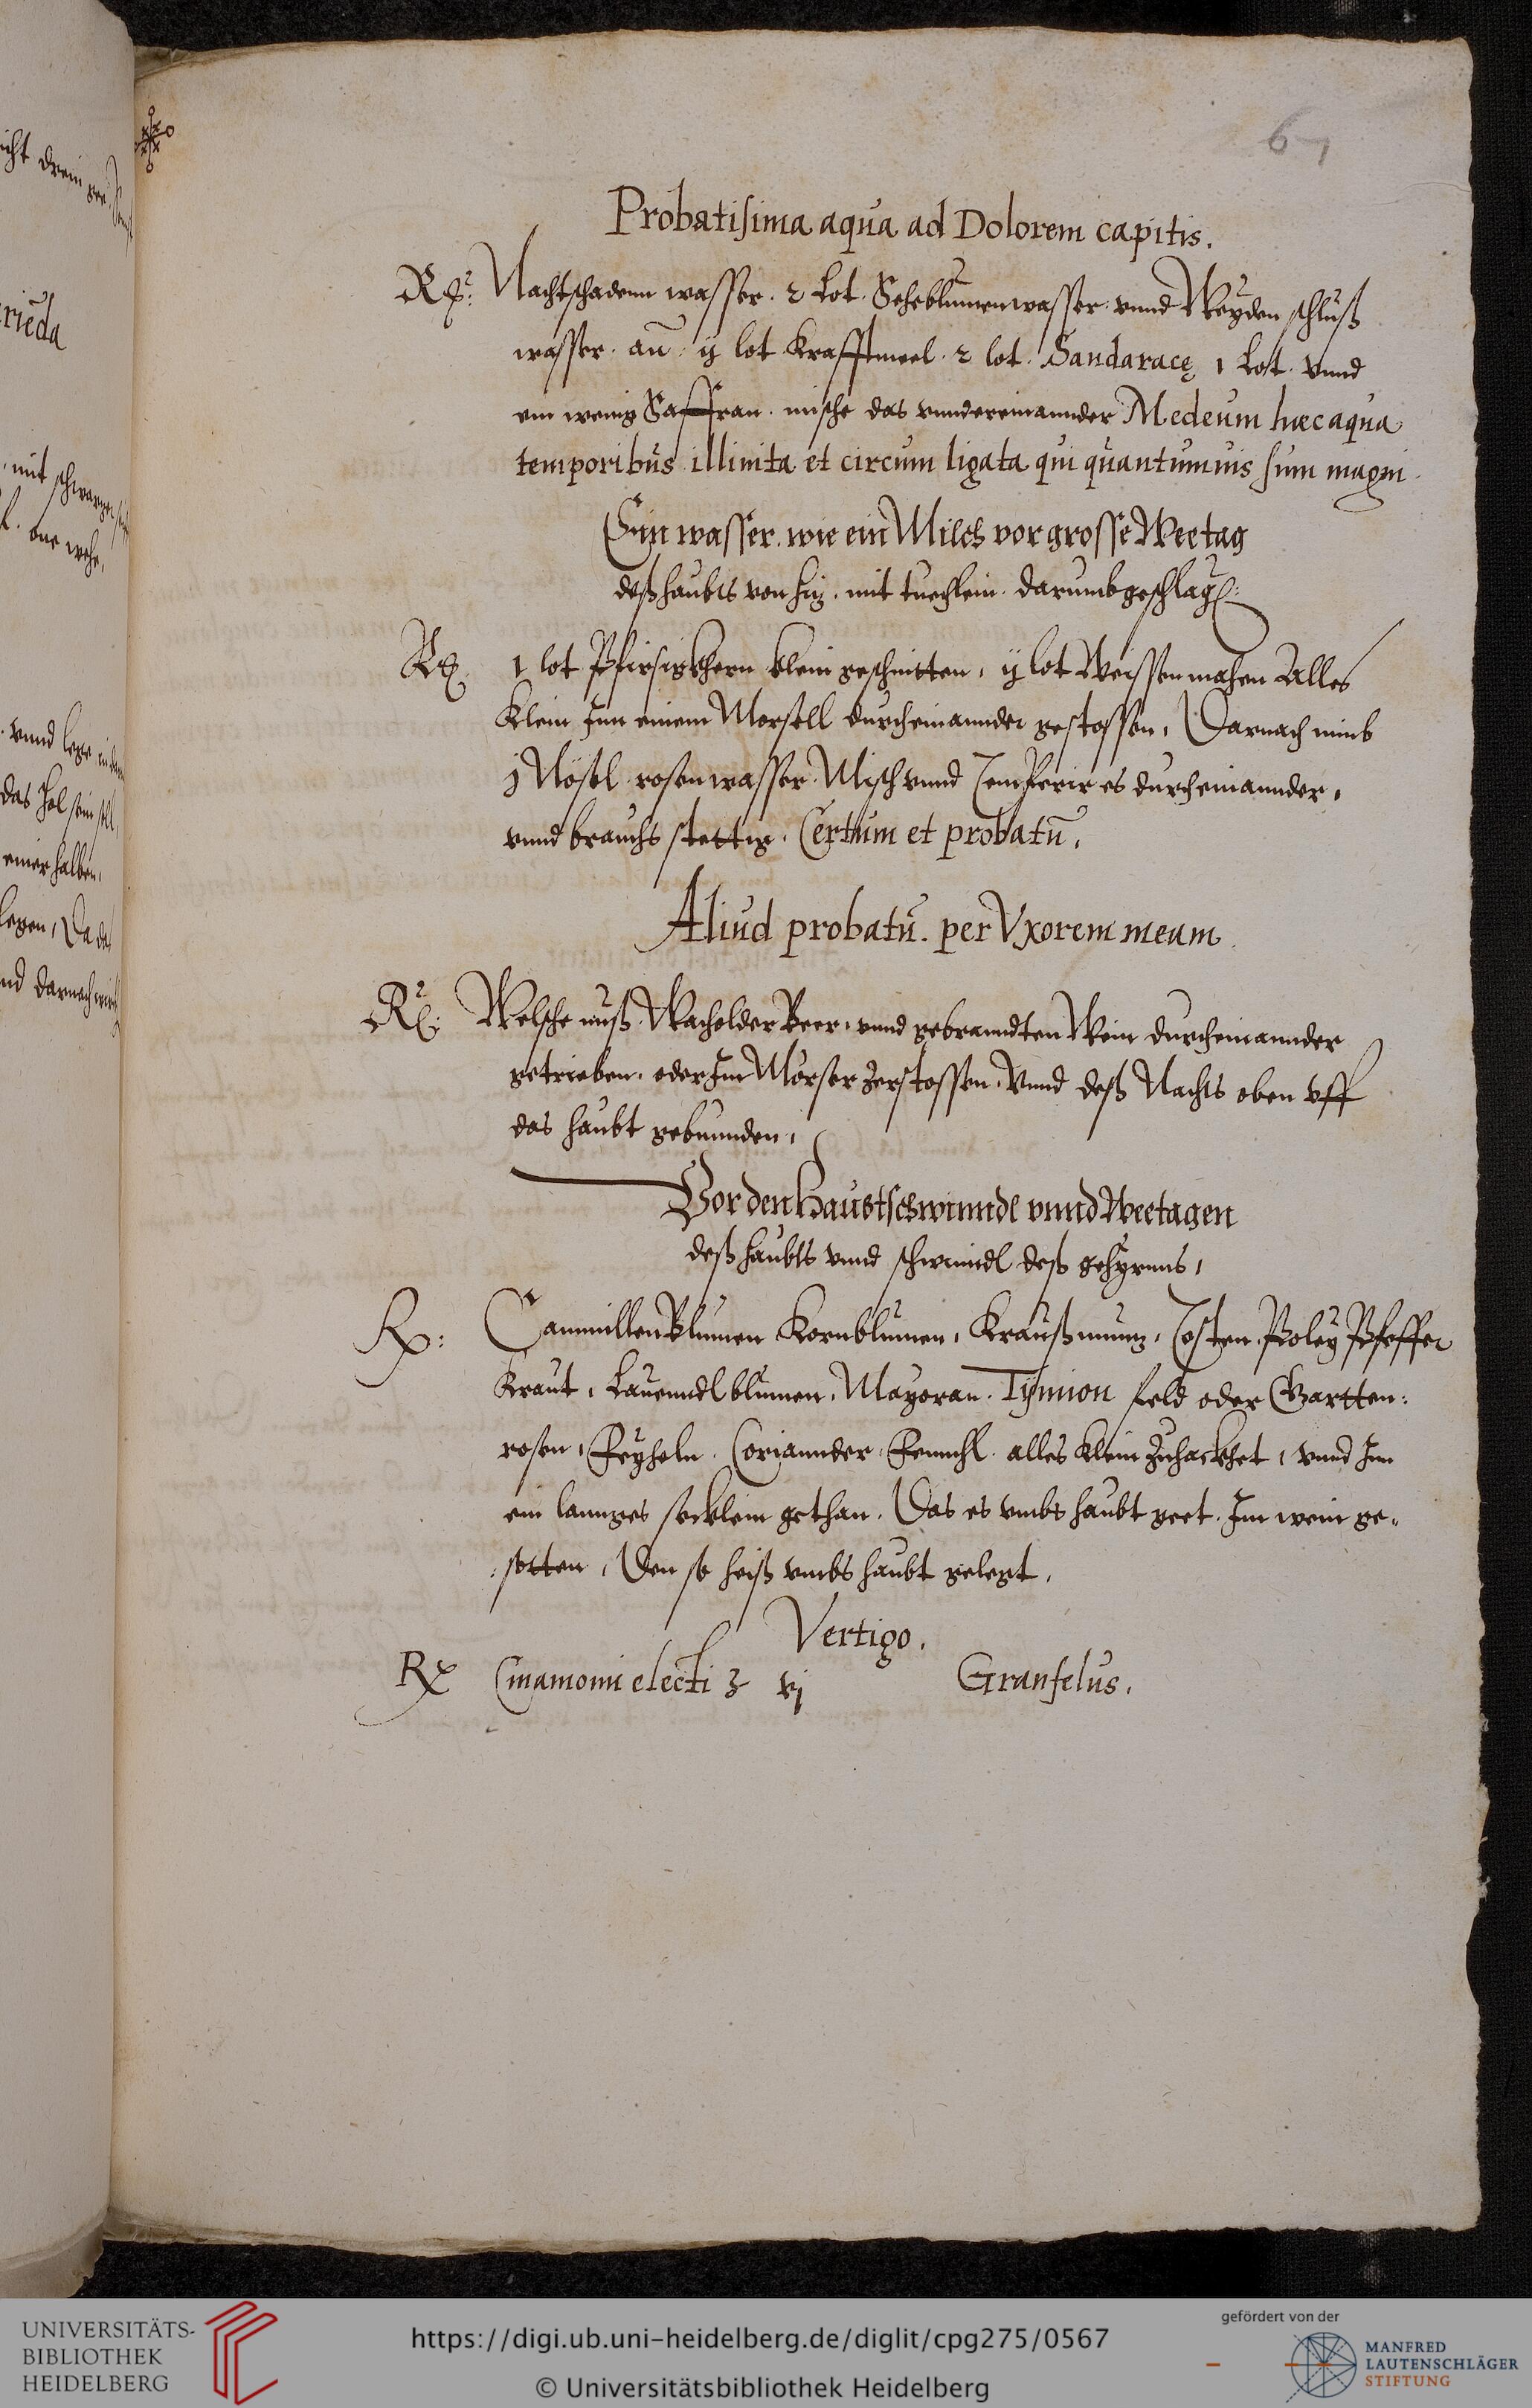 6
Probatisima aqua ad Dolorem capitis.
Rp: Nachtschadenn wasser. 2 Lot. Seheblumenwasser vnnd Weyden schluß
wasser. an̄. ij lot Krafftmeel. 2 lot. Sandaracę 1 Lot. vnnd
ein wenig Saffran. mische das vnndereinannder Medeum hæc aqua
temporibus illinita et circum ligata qui quantumuis sum magni.
Ein wasser. wie ein Milch vor grosse Weetag
deß haubts von hiz. mit tuechlein. darumb geschlag.
Rp. 1 lot Pfirsigkhern klein geschnitten, ij lot Weissenmahen Alles
Klein Inn einem Morsell durcheinannder gestossen, Darnach nimb
j Nösel rosenwasser. Misch vnnd Temperir es durcheinannder,
vnnd brauchs stettig. Certum et probatū.
Aliud probatū. per Vxorem meam.
Rp: Welsche nuß. Wacholder Beer, vnnd gebranndten Wein durcheinannder
getrieben, oder Im Mörser zerstossen. Vnnd deß Nachts oben vff
das haubt gebunnden,
Vor den Haubtschwinndl vnnd Weetagen
deß haubts vnnd schwinndl deß gehyrnns,
Rp: CammillenBlumen Kornblumen, Kraußmunz, Tosten. Poley Pfeffer
Kraut, Lauenndlblumen, Mayoran. Tijmion feld oder Gartten:
rosen, Feyheln. Coriannder. Fennchl. alles klein zuhackhet, vnnd Inn
ein lannges secklein gethan. Das es vmbs haubt geet. Im wein ge„
sotten, Den so heiß vmbs haubt gelegt.
Vertigo.
Rp Cinamomi electi ʒ vj Granfelus.
icht drein
rieda
mit schwarzer
one wehe,
vnnd lege
das hol sein soll
einer halben,
legen, Da das
nd darnach
UNIVERSITÄTS-
BIBLIOTHEK
HEIDELBERG
https://digi.ub.uni-heidelberg.de/diglit/cpg275/0567
© Universitätsbibliothek Heidelberg
gefördert von der
MANFRED
LAUTENSCHLÄGER
STIFTUNG